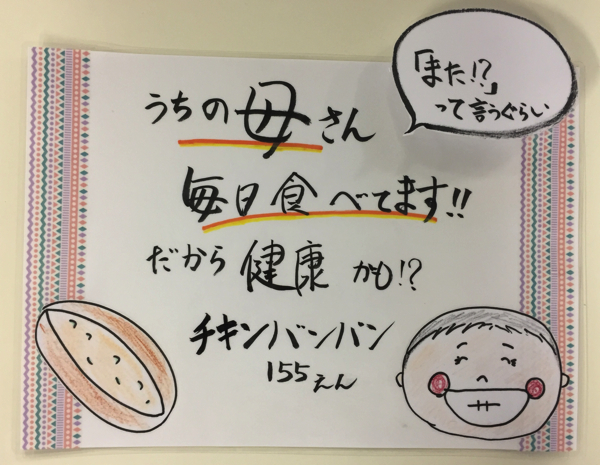 「また!?」
って言うぐらい
うちの母さん
毎日食べてます!!
だから健康かも!?
チキンバンバン
155えん